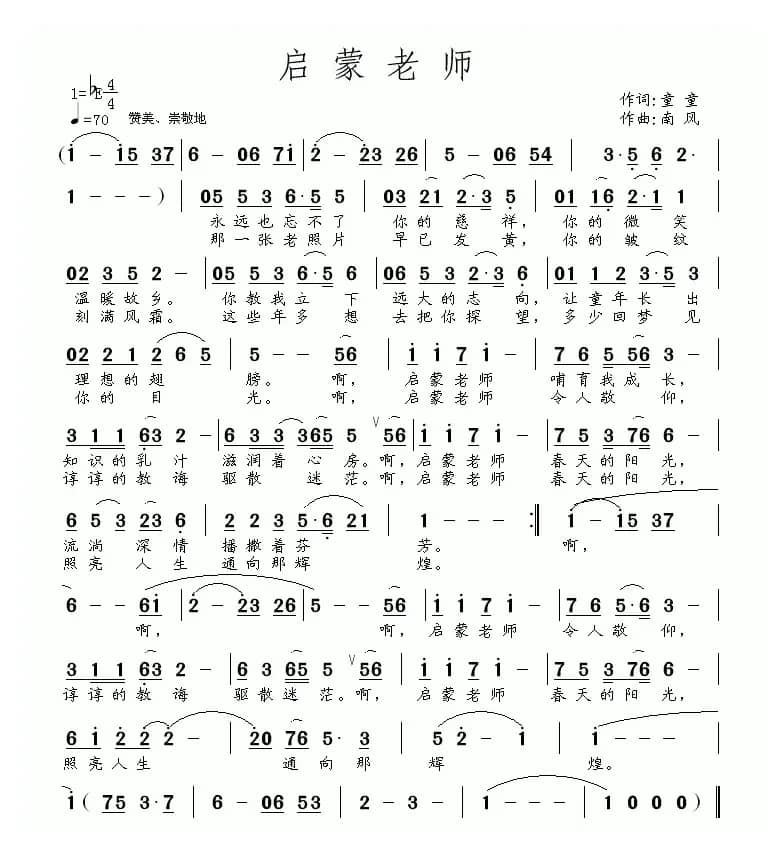 启蒙老师
1=♭E 4/4
♩=70 赞美、崇敬地
作词:童 童
作曲:南 风
(1 - 15 37 | 6 - 06 71 | 2 - 23 26 | 5 - 06 54 | 3·5 6 2·
1 - - ) | 05 5 3 6·5 5 | 03 21 2·3 5 | 01 16 2·1 1
永远也忘不了 你的慈祥, 你的微笑
那一张老照片 早已发黄, 你的皱纹
02 3 5 2 - | 05 5 3 6·5 6 | 06 5 3 2·3 6 | 01 1 2 3·5 3
温暖故乡。 你教我立下 远大的志向, 让童年长出
刻满风霜。 这些年多想 去把你探望, 多少回梦见
02 2 1 2 6 5 | 5 - - 56 | 1 1 7 1 - | 7 6 5 56 6 -
理想的翅膀。 啊, 启蒙老师 哺育我成长,
你的目光。 啊, 启蒙老师 令人敬仰,
3 1 1 63 2 - | 6 3 3 3 65 5 ∨ 56 | 1 1 7 1 - | 7 5 3 76 6 -
知识的乳汁 滋润着心房。啊, 启蒙老师 春天的阳光,
谆谆的教诲 驱散迷茫。啊, 启蒙老师 春天的阳光,
6 5 3 23 6 | 2 2 3 5·6 21 | 1 - - - :‖ 1 - 15 37
流淌深情 播撒着芬芳。 啊,
照亮人生 通向那辉煌。
6 - - 61 | 2 - 23 26 | 5 - - 56 | 1 1 7 1 - | 7 6 5·6 6 -
啊, 啊, 启蒙老师 令人敬仰,
3 1 1 63 2 - | 6 3 65 5 ∨ 56 | 1 1 7 1 - | 7 5 3 76 6 -
谆谆的教诲 驱散迷茫。啊, 启蒙老师 春天的阳光,
6 1 2 2 2 - | 20 76 5· 3 | 5 2 - 1 | 1 - - -
照亮人生 通向那辉煌。
1( 75 3·7 | 6 - 06 53 | 2 - 3 - | 1 - - - | 1 0 0 0 ‖